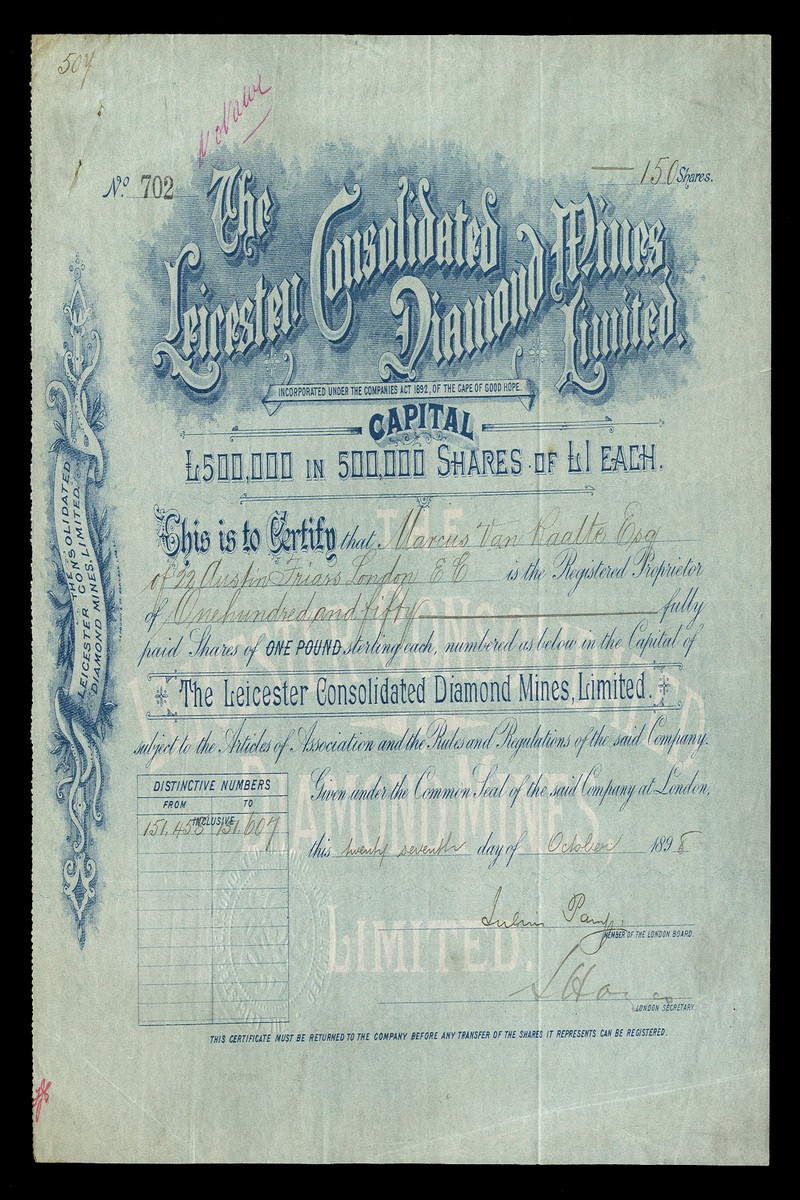 507
No Value
No. 702
150 Shares.
The
Leicester Consolidated
Diamond Mines,
Limited.
INCORPORATED UNDER THE COMPANIES ACT 1892, OF THE CAPE OF GOOD HOPE.
CAPITAL
£500,000 IN 500,000 SHARES OF £1 EACH.
This is to Certify that Marcus Van Raalte Esq
of 22 Austin Friars London E C is the Registered Proprietor
of One hundred and fifty fully
paid Shares of ONE POUND sterling each, numbered as below in the Capital of
The Leicester Consolidated Diamond Mines, Limited.
subject to the Articles of Association and the Rules and Regulations of the said Company.
DISTINCTIVE NUMBERS
FROM TO
INCLUSIVE
151.458 151.607
Given under the Common Seal of the said Company at London,
this twenty seventh day of October 1898
MEMBER OF THE LONDON BOARD.
LONDON SECRETARY
THIS CERTIFICATE MUST BE RETURNED TO THE COMPANY BEFORE ANY TRANSFER OF THE SHARES IT REPRESENTS CAN BE REGISTERED.
THE
LEICESTER CONSOLIDATED
DIAMOND MINES, LIMITED.
THE
LEICESTER CONSOLIDATED
DIAMOND MINES,
LIMITED.